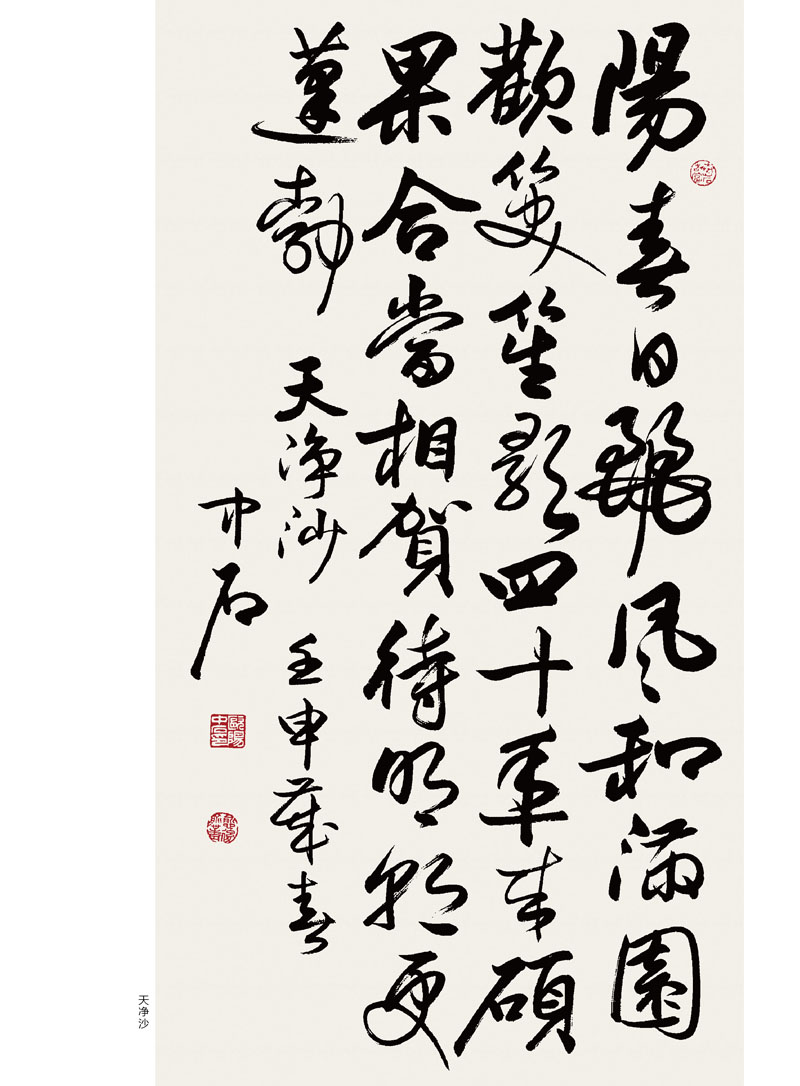 陽春日麗風和滿園
歡笑笙歌四十年來碩
果合當相賀待明朝更
蓬勃 天净沙 壬申歲春
中石
歐陽中石
天净沙